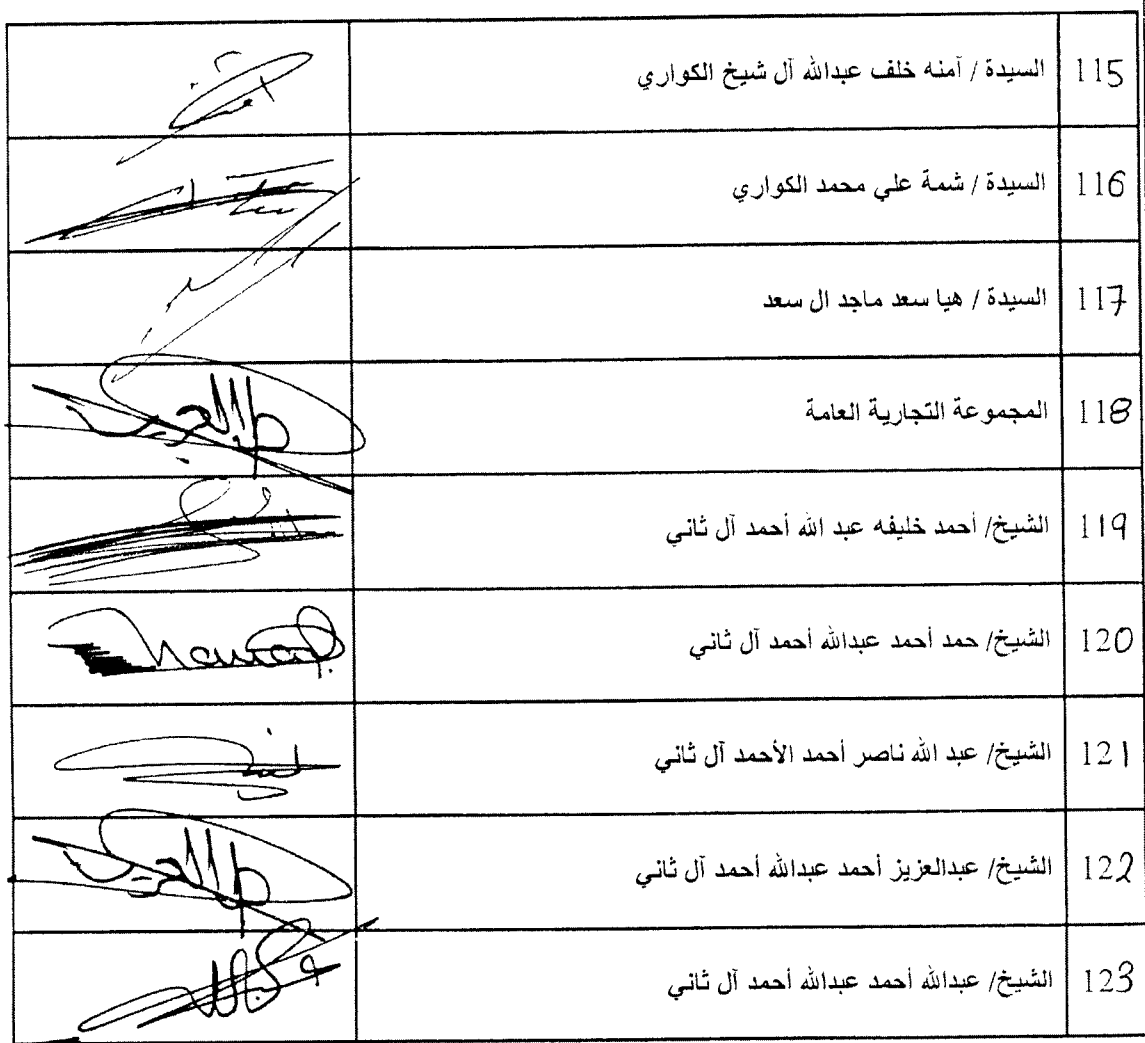 115 السيدة / آمنه خلف عبدالله آل شيخ الكواري
116 السيدة / شمة علي محمد الكواري
117 السيدة / هيا سعد ماجد ال سعد
118 المجموعة التجارية العامة
119 الشيخ/ أحمد خليفه عبد الله أحمد آل ثاني
120 الشيخ/ حمد أحمد عبدالله أحمد آل ثاني
121 الشيخ/ عبد الله ناصر أحمد الأحمد آل ثاني
122 الشيخ/ عبدالعزيز أحمد عبدالله أحمد آل ثاني
123 الشيخ/ عبدالله أحمد عبدالله أحمد آل ثاني